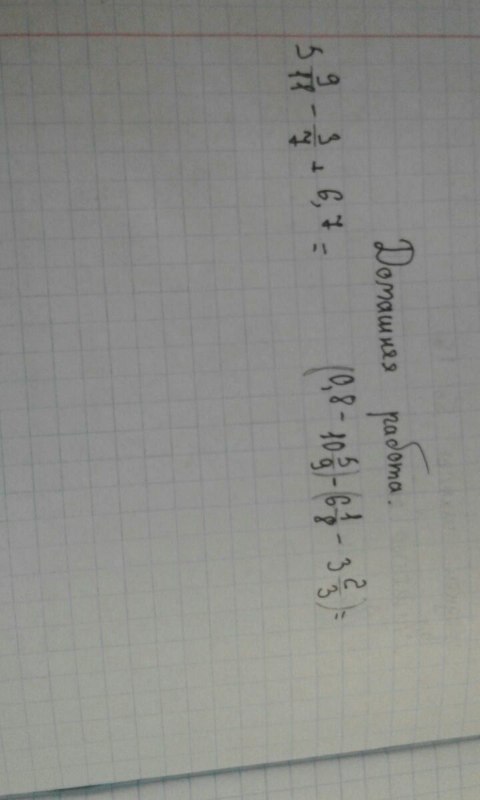 Домашняя работа.
5 9/11 - 3/7 + 6,7 = (0,8 - 10 5/9) - (6 1/8 - 3 2/3) =